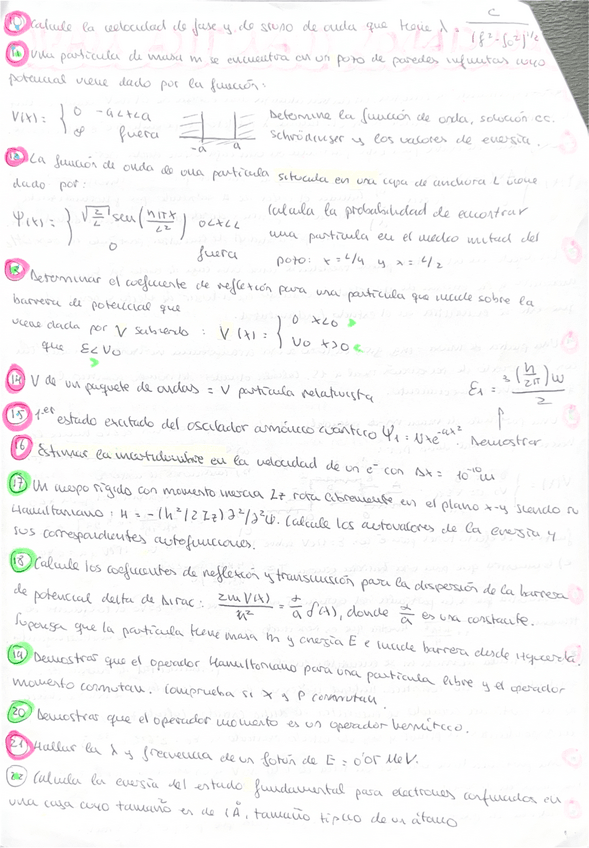 10 Calcule la velocidad de fase y de grupo de onda que tiene λ C/(f²-fo²)^1/2
11 Una partícula de masa m se encuentra en un pozo de paredes infinitas cuyo
potencial viene dado por la función:
V(x) = { 0 -a<x<a
∞ fuera
-a a
Determine la función de onda, solución ec.
Schrödinger y los valores de energía.
12 La función de onda de una partícula situada en una caja de anchura L viene
dado por:
Ψ(x) = { √(2/L) sen(nπx/L²) 0<x<L
0 fuera
Calcula la probabilidad de encontrar
una partícula en el medio mitad del
pozo: x = L/4 y x = L/2
13 Determinar el coeficiente de reflexión para una partícula que incide sobre la
barrera de potencial que
viene dada por V sabiendo : V(x) = { 0 x<0
V0 x>0
que E<V0
14 V de un paquete de ondas = V partícula relativista
E1 = 3(h/2π)ω/2
15 1er estado excitado del oscilador armónico cuántico Ψ1 = Nxe^-ax². Demostrar
16 Estimar la incertidumbre en la velocidad de un e- con Δx = 10^-10 m
17 Un cuerpo rígido con momento inercia Iz rota libremente en el plano x-y siendo su
Hamiltoniano : H = -(ħ²/2Iz)∂²/∂²φ. Calcule los autovalores de la energía y
sus correspondientes autofunciones.
18 Calcule los coeficientes de reflexión y transmisión para la dispersión de la barrera
de potencial delta de Dirac: 2mV(x)/ħ² = α/a δ(x), donde α/a es una constante.
Suponga que la partícula tiene masa m y energía E e incide barrera desde izquierda.
19 Demostrar que el operador Hamiltoniano para una partícula libre y el operador
momento conmutan. Comprueba si X y P conmutan.
20 Demostrar que el operador momento es un operador hermítico.
21 Hallar la λ y frecuencia de un fotón de E = 0'05 MeV.
22 Calcula la energía del estado fundamental para electrones confinados en
una caja cuyo tamaño es de 1 Å, tamaño típico de un átomo